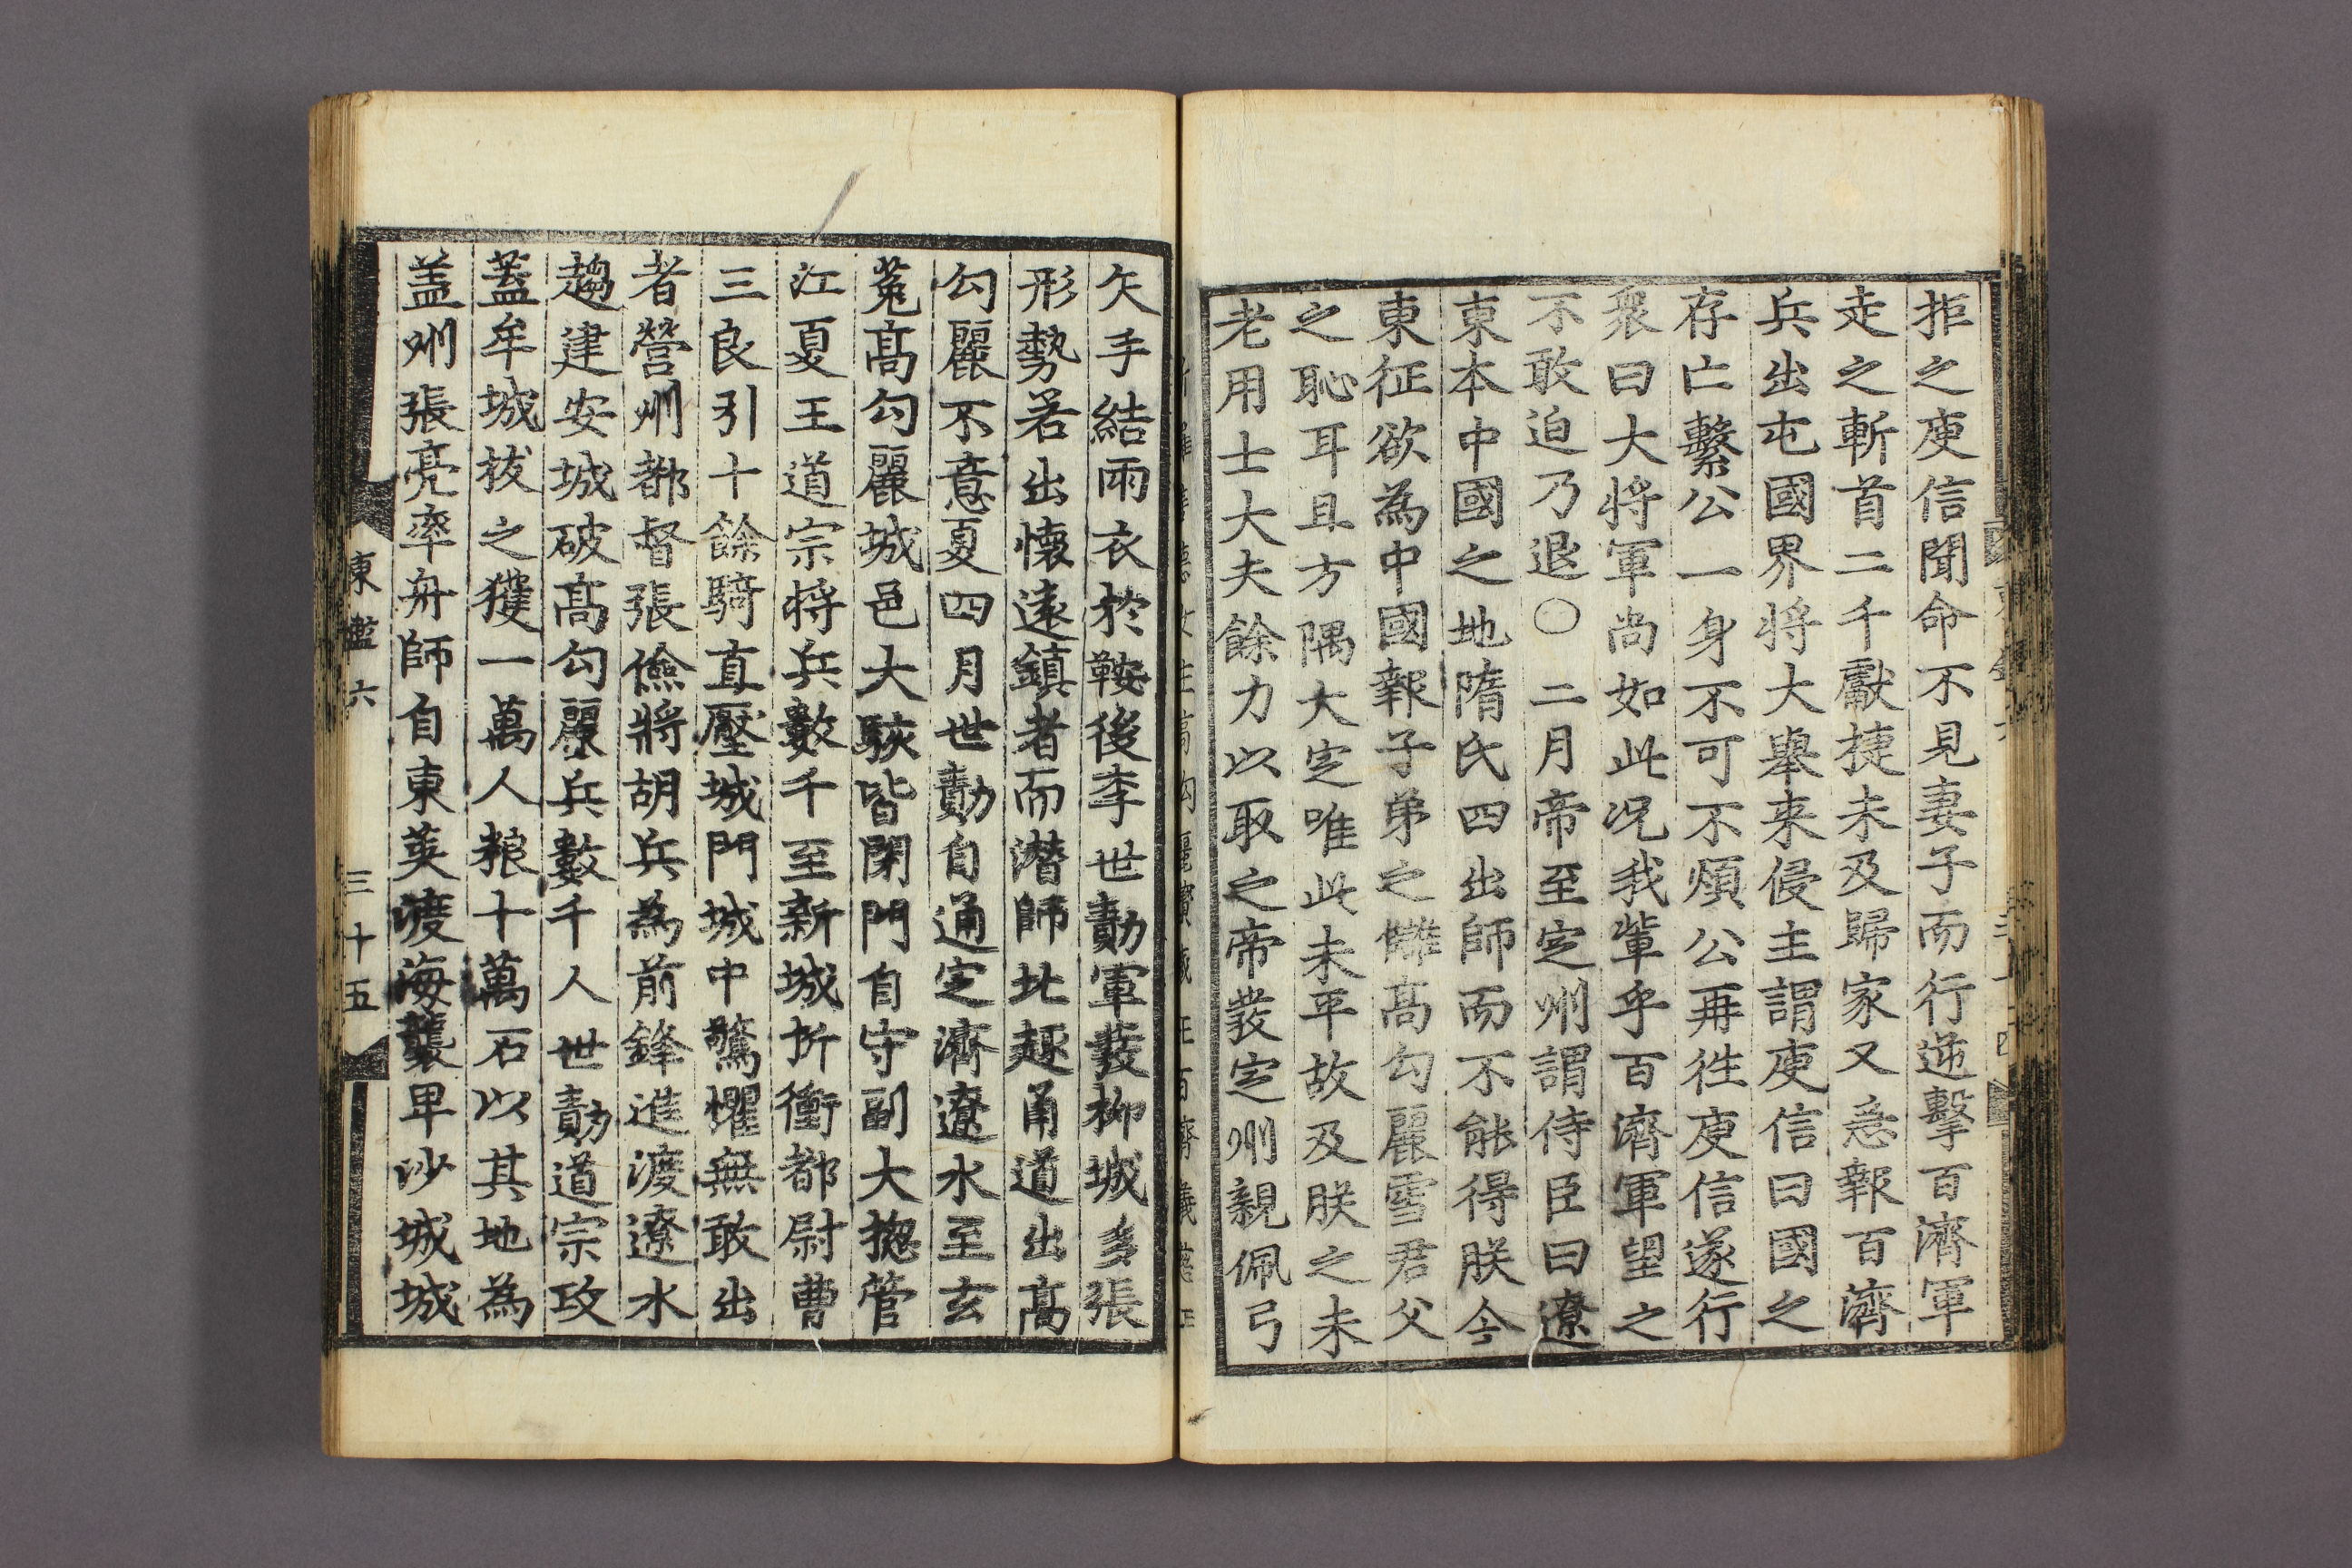 拒之庾信聞命不見妻子而行逆擊百濟軍
走之斬首二千獻捷未及歸家又急報百濟
兵出屯國界将大擧来侵主謂庾信曰國之
存亡繫公一身不可不煩公再徃庾信遂行
衆曰大将軍尚如此况我輩乎百濟軍望之
不敢迫乃退〇二月帝至定州謂侍臣曰遼
東本中國之地隋氏四出師而不能得朕今
東征欲為中國報子弟之讎髙勾麗雪君父
之恥耳且方隅大定唯此未平故及朕之未
老用士大夫餘力以取之帝裝定州親佩弓
矢手結雨衣於鞍後李世勣軍發柳城多張
形勢若出懐遠鎮者而潜師北趣甬道出髙
勾麗不意夏四月世勣自通定濟遼水至玄
菟髙勾麗城邑大駭皆閉門自守副大摠管
江夏王道宗将兵數千至新城折衝都尉曹
三良引十餘騎直壓城門城中驚懼無敢出
者營州都督張儉將胡兵為前鋒進渡遼水
趨建安城破髙勾麗兵數千人世勣道宗攻
蓋牟城拔之獲一萬人粮十萬石以其地為
盖州張亮率舟師自東萊渡海襲卑沙城城
東鑑六
三十五